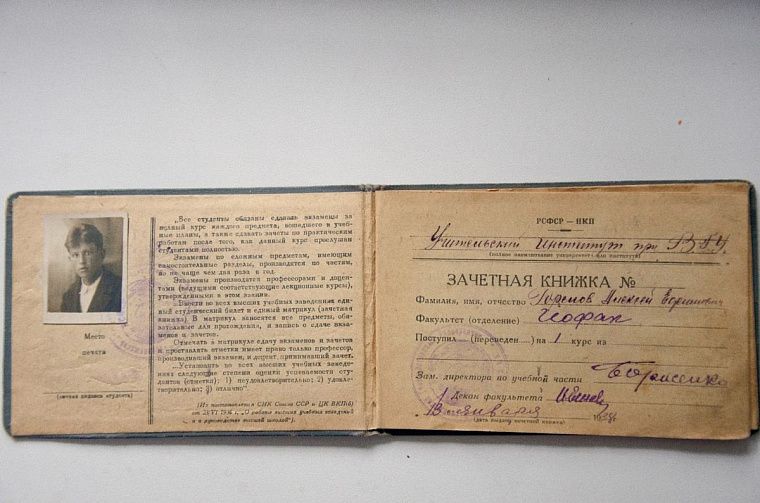 Место
печати
(личная подпись студента)
„Все студенты обязаны сдавать экзамены за
полный курс каждого предмета, вошедшего в учеб-
ные планы, а также сдавать зачеты по практическим
работам после того, как данный курс прослушан
студентами полностью.
Экзамены по сложным предметам, имеющим
самостоятельные разделы, производятся по частям,
но не чаще чем два раза в год.
Экзамены производятся профессорами и доцен-
тами (ведущими соответствующие лекционные курсы),
утвержденными в этом звании.
„Ввести во всех высших учебных заведениях еди-
ный студенческий билет и единый матрикул (зачетная
книжка). В матрикул заносятся все предметы, обя-
зательные для прохождения, и запись о сдаче экза-
менов и зачетов.
Отмечать в матрикуле сдачу экзаменов и зачетов
и проставлять отметки имеет право только профессор,
производивший экзамен, и доцент, принимавший зачет.
„Установить во всех высших учебных заведе-
ниях следующие степени оценки успеваемости сту-
дентов (отметки): 1) неудовлетворительно; 2) удовле-
творительно; 3) отлично".
(Из постановления СНК Союза ССР и ЦК ВКП(б)
от 23/VI 1936 г. „О работе высших учебных заведений
и о руководстве высшей школой").
РСФСР — НКП
Учительский Институт при
(полное наименование университета или института)
ЗАЧЕТНАЯ КНИЖКА №
Фамилия, имя, отчество Алексей
Факультет (отделение) Геофак
Поступил (переведен) на 1 курс из
Зам. директора по учебной части Борисенко
Декан факультета
13 января 193
(дата выдачи зачетной книжки)